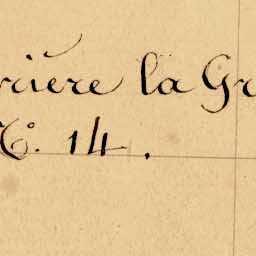 rrière la Gr
N°. 14.